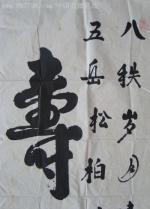 八秩岁月
五岳松柏
寿